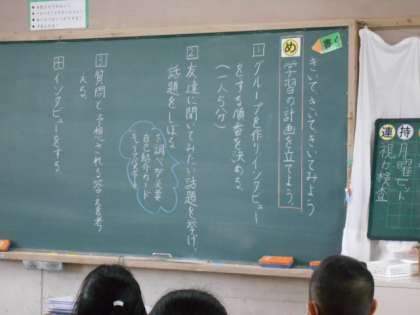 書く
きいて、きいて、きいてみよう
め
学習の計画を立てよう
1 グループを作りインタビュー
をする順番を決める。
(一人5分)
2 友達に聞いてみたい話題を挙げ、
話題をしぼる。
自己紹介カード
3 質問と予想される答えを考
える。
4 インタビューをする。
連
持
月曜セット
視力検査